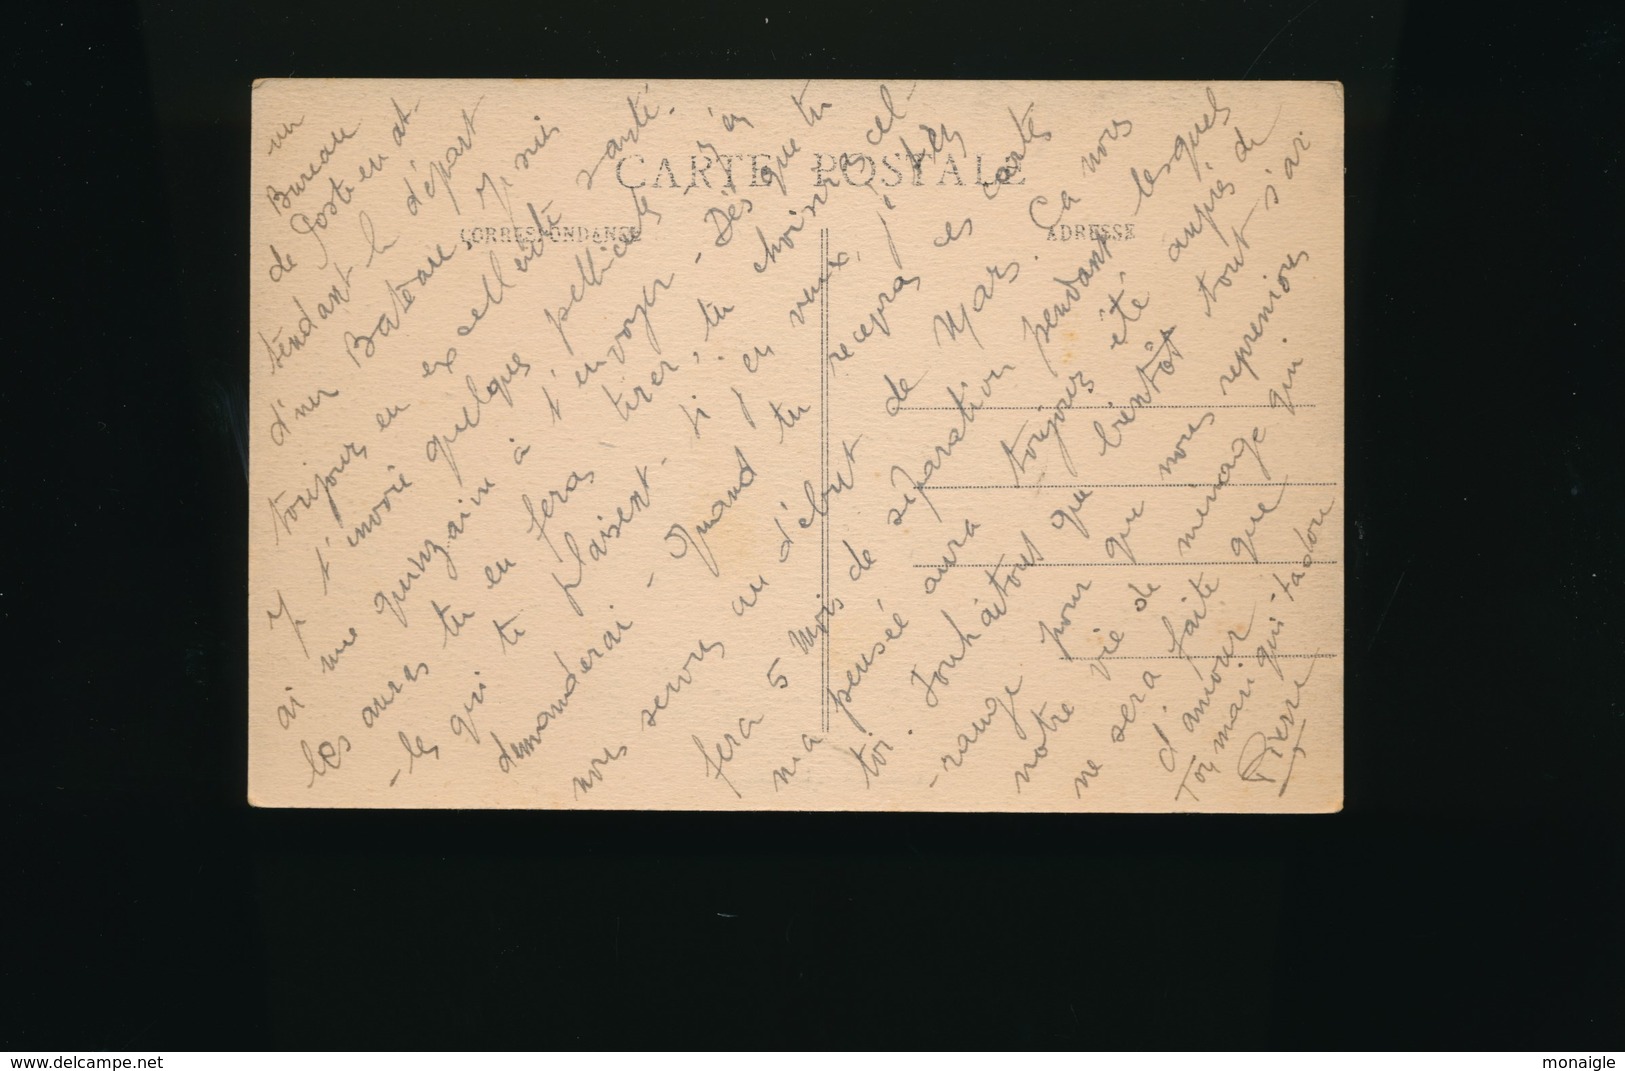 CARTE POSTALE
CORRESPONDANCE
ADRESSE
un
Bureau
de Poste en at-
tendant le départ
d'un Bateau. Je suis
toujours en excellente santé.
Je t'envoie quelques pellicules j'en
ai une quinzaine à t'envoyer - Dès que tu
les auras tu en feras tirer, tu choisiras cel-
-les qui te plaisent - si j'en veux, j't'en
demanderai - Quand tu recevras ces cartes
nous serons au début de Mars. Ca nous
fera 5 Mois de séparation pendant lesquels
ma pensée aura toujours été auprès de
toi. Souhaitons que bientôt tout s'ar-
-range pour que nous reprenions
notre vie de ménage qui
ne sera faite que
d'amour
Ton mari qui t'adore
Pierre
www.delcampe.net
monaigle